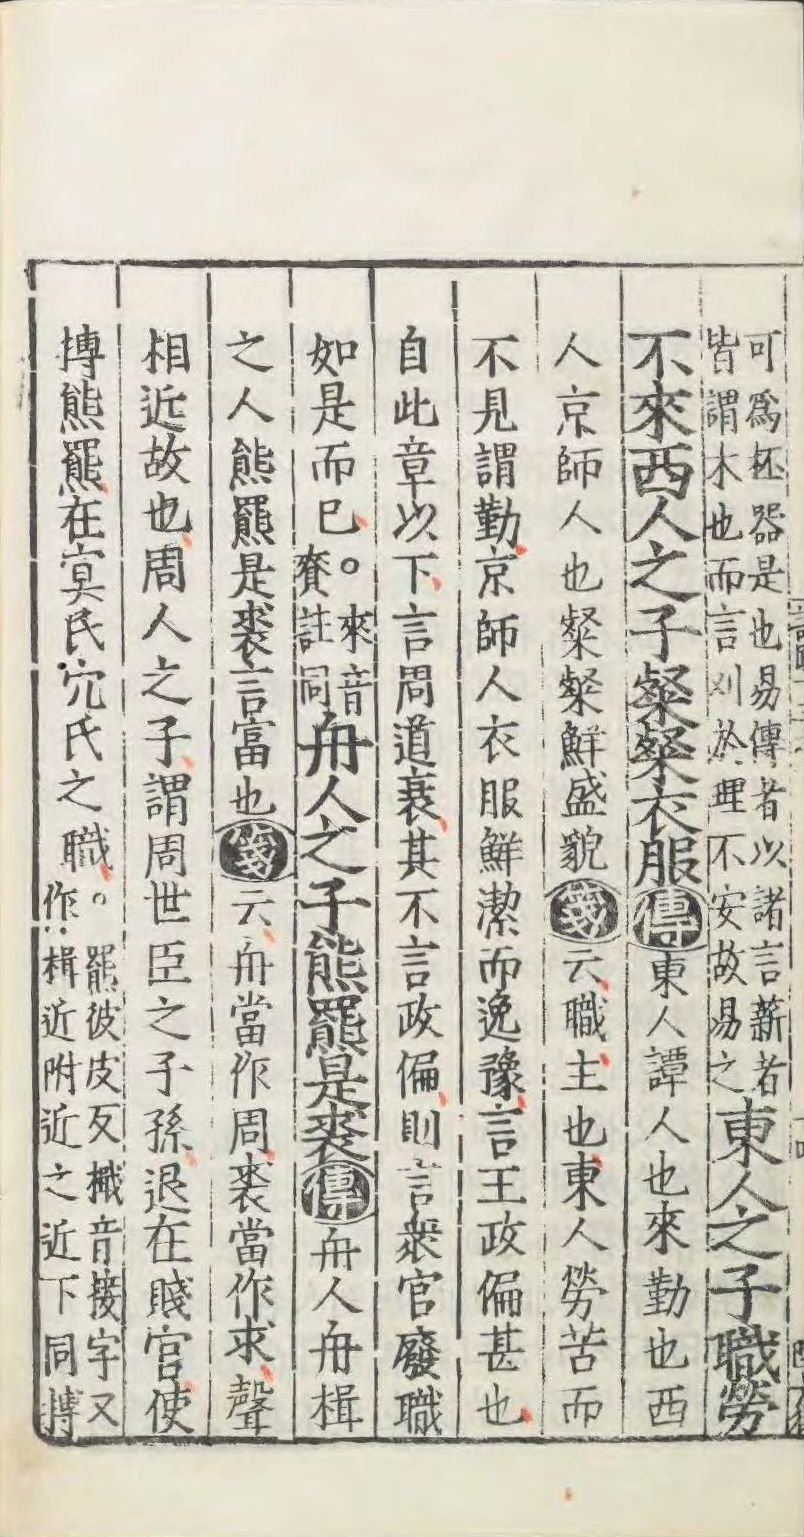 可爲杯器是也易傳者以諸言薪者
皆謂木也而言刈於理不安故易之東人之子職勞
不來西人之子粲粲衣服傳東人譚人也來勤也西
人京師人也粲粲鮮盛貌箋云職主也東人勞苦而
不見謂勤京師人衣服鮮潔而逸豫言王政偏甚也
自此章以下言周道衰其不言政偏則言衆官廢職
如是而已。來音賚註同舟人之子熊羆是裘傳舟人舟楫
之人熊羆是裘言富也箋云舟當作周裘當作求聲
相近故也周人之子謂周世臣之子孫退在賤官使
搏熊羆在冥氏穴氏之職。羆彼皮反檝音接字又
作楫近附近之近下同搏